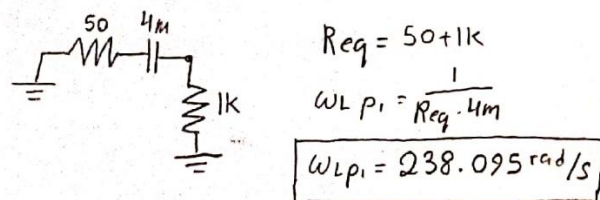 50 4m
1k
Req = 50+1k
ωL p₁ = 1
Req · 4m
ωLp₁ = 238.095 rad/s